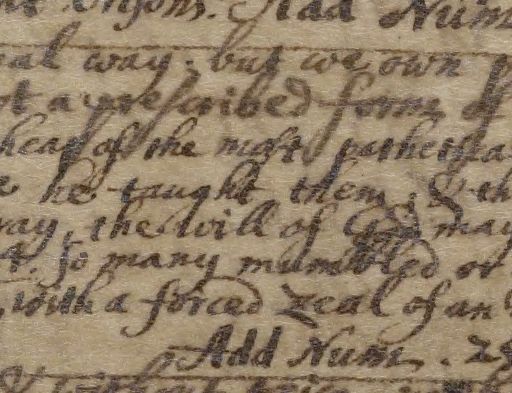 Add Num
al way. but we own
ot a prescribed form of
heap of the most pathetica
he taught them. & th
ay, the will of God may
so many mumbled or
with a forced zeal of an
Add Num. 28